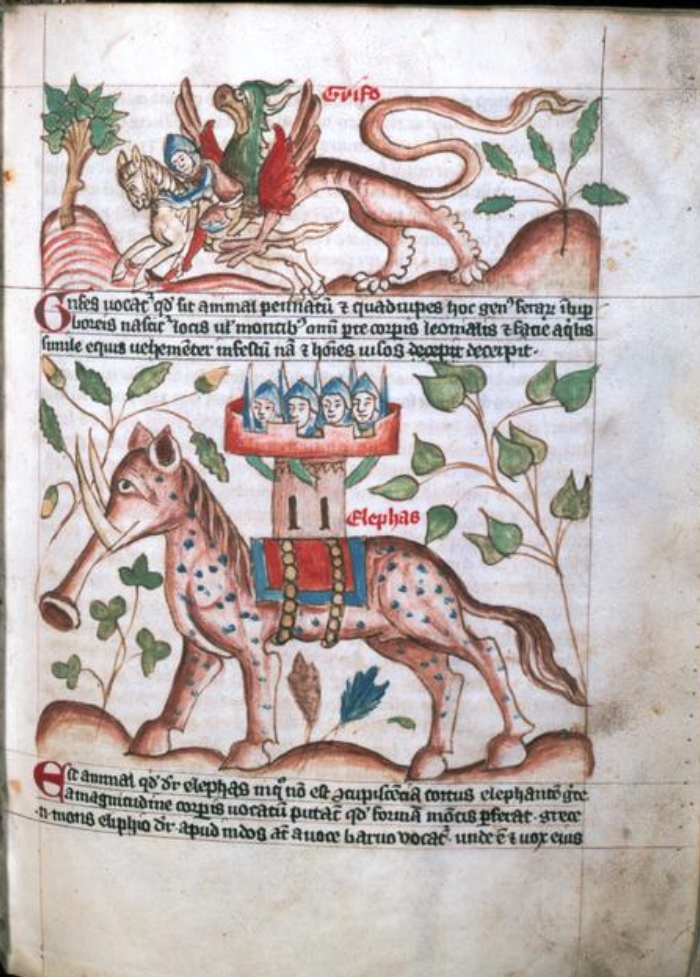 Grifo
Grifes uocat' qd' sit animal pennatū ⁊ quadrupes hoc gen' ferar̄
boreis nascit' locis ul' montib' om̄i p̄te corp̄is leonis ⁊ facie aq̄lis
simile equis uehemēter infestū nā ⁊ hōies uisos decepit decerpit.
Elephas
Est animal qd' dr̄ elephas in q̄ nō est ꝯcupiscētia coitus elephantē gre
a magnitudine corp̄is uocatū putāt qd' formā mōtis p̄ferat. grece
.n. mons eliphio dr̄. apud indos at̄ a uoce barro uocat'. unde ē ⁊ uox eius